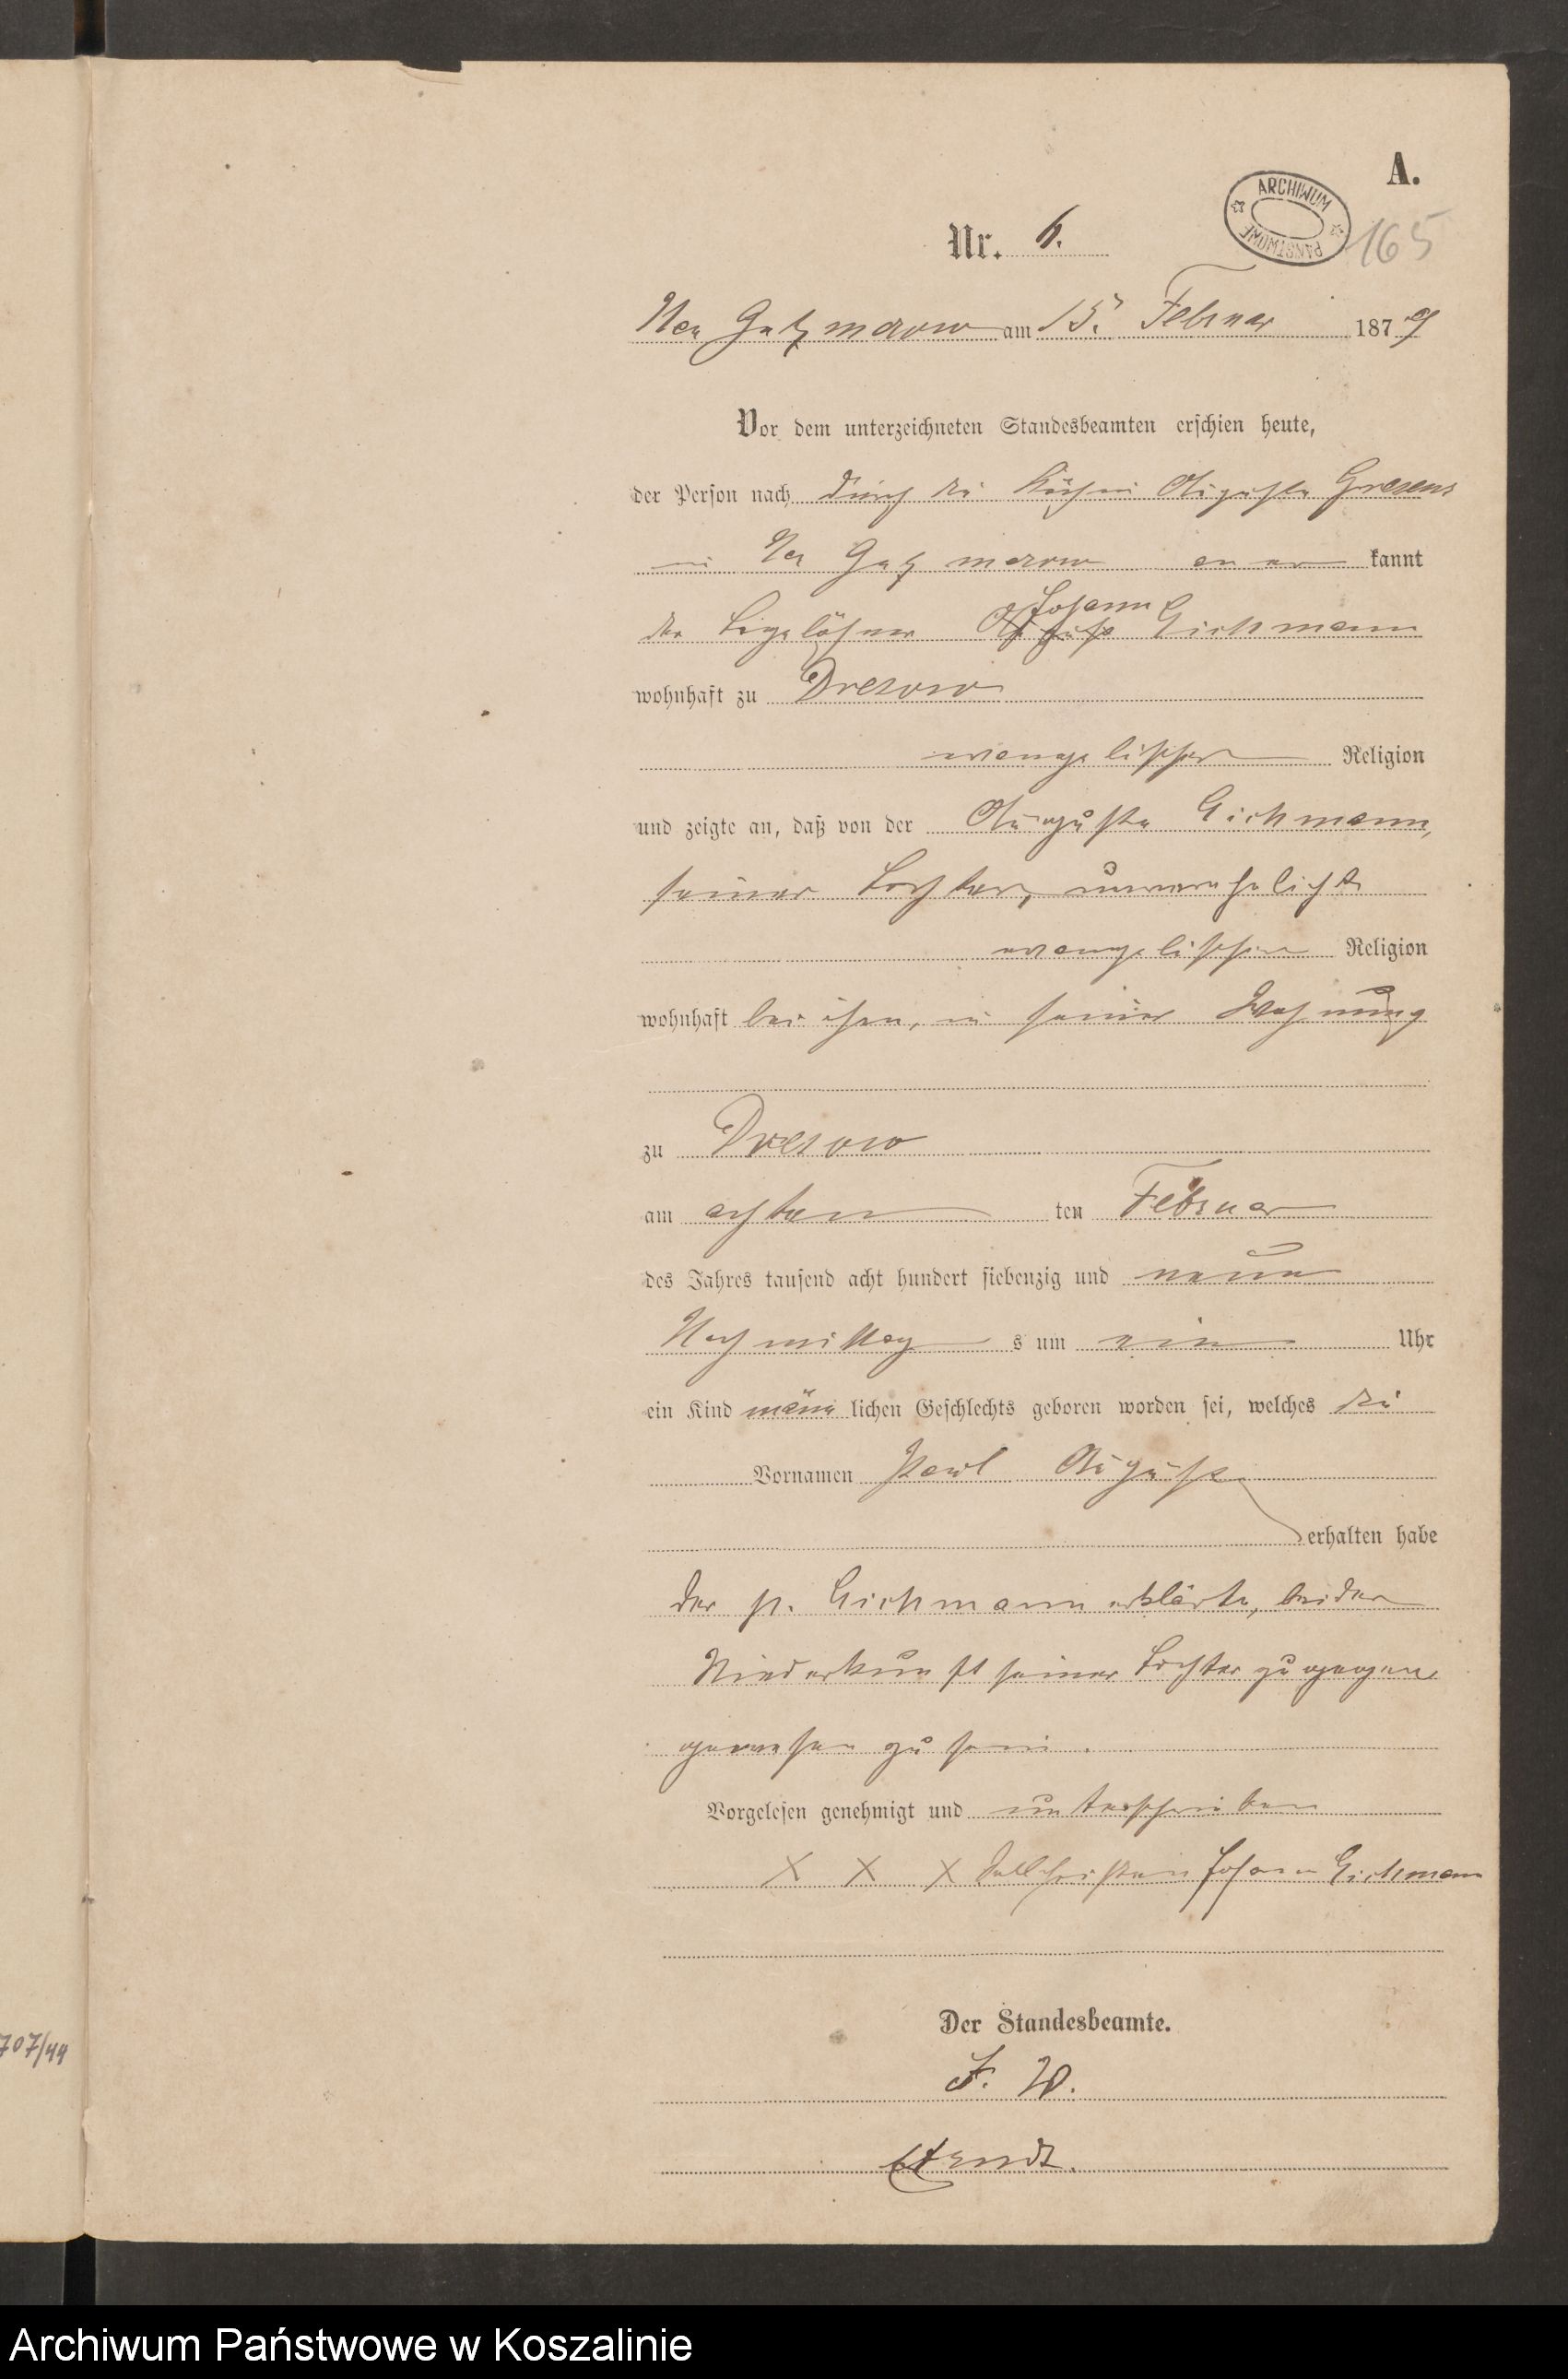 A.
ARCHIWUM PAŃSTWOWE
165
Nr. 6.
Neu Gutzmerow am 15. Februar 1879
Vor dem unterzeichneten Standesbeamten erschien heute,
der Person nach durch die Köchin Auguste
in Neu Gutzmerow kannt
Johann
der Tagelöhner August Eichmann
wohnhaft zu Dresow
evangelischer Religion
und zeigte an, daß von der Auguste Eichmann,
seiner Tochter, unverehelicht
evangelischer Religion
wohnhaft bei ihm, in seiner Wohnung
zu Dresow
am achten ten Februar
des Jahres tausend acht hundert siebenzig und neun
Nachmittag s um ein Uhr
ein Kind männ lichen Geschlechts geboren worden sei, welches die
Vornamen Paul August
erhalten habe
der p. Eichmann erklärte, bei der
Niederkunft seiner Tochter zugegen
gewesen zu sein.
Vorgelesen genehmigt und unterschrieben
X X X Johann Eichmann
Der Standesbeamte.
707/44
Archiwum Państwowe w Koszalinie